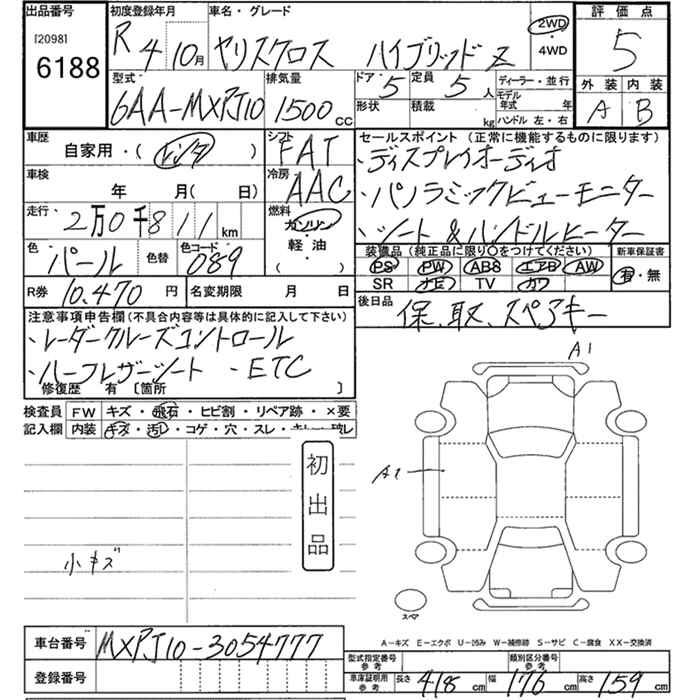 出品番号
[2098]
6188
初度登録年月
R 4 10月
車名・グレード
ヤリスクロス ハイブリッド Z
2WD
・
4WD
評価点
5
外装 内装
A B
型式
6AA-MXPJ10
排気量
1500 cc
ドア
5
定員
5人
形状
積載
kg
ディーラー・並行
モデル年式 年
ハンドル 左・右
車歴
自家用・(レンタ)
シフト
FAT
車検
年 月(日)
冷房
AAC
走行
2万0千811km
燃料
ガソリン
・
軽油
( )
色
パール
色替
色コード
089
R券 10,470円
名変期限 月 日
セールスポイント(正常に機能するものに限ります)
・ディスプレイオーディオ
・パノラミックビューモニター
・シート&ハンドルヒーター
装備品(純正品に限り○をつけてください)
PS PW ABS エアB AW
SR ナビ TV カワ
新車保証書
有・無
後日品
保、取、スペアキー
注意事項申告欄(不具合内容等は具体的に記入して下さい)
・レーダークルーズコントロール
・ハーフレザーシート ・ETC
修復歴 有〔箇所 〕
検査員
記入欄
FW キズ・飛石・ヒビ割・リペア跡・×要
内装 キズ・汚レ・コゲ・穴・スレ・キレ・破レ
初出品
小キズ
A1
A1
スペア
A-キズ E-エクボ U-凹み W-補修跡 S-サビ C-腐食 XX-交換済
車台番号 MXPJ10-3054777
登録番号
型式指定番号
参考
類別区分番号
参考
車庫証明用
参考
長さ 418cm 幅 176cm 高さ 159cm